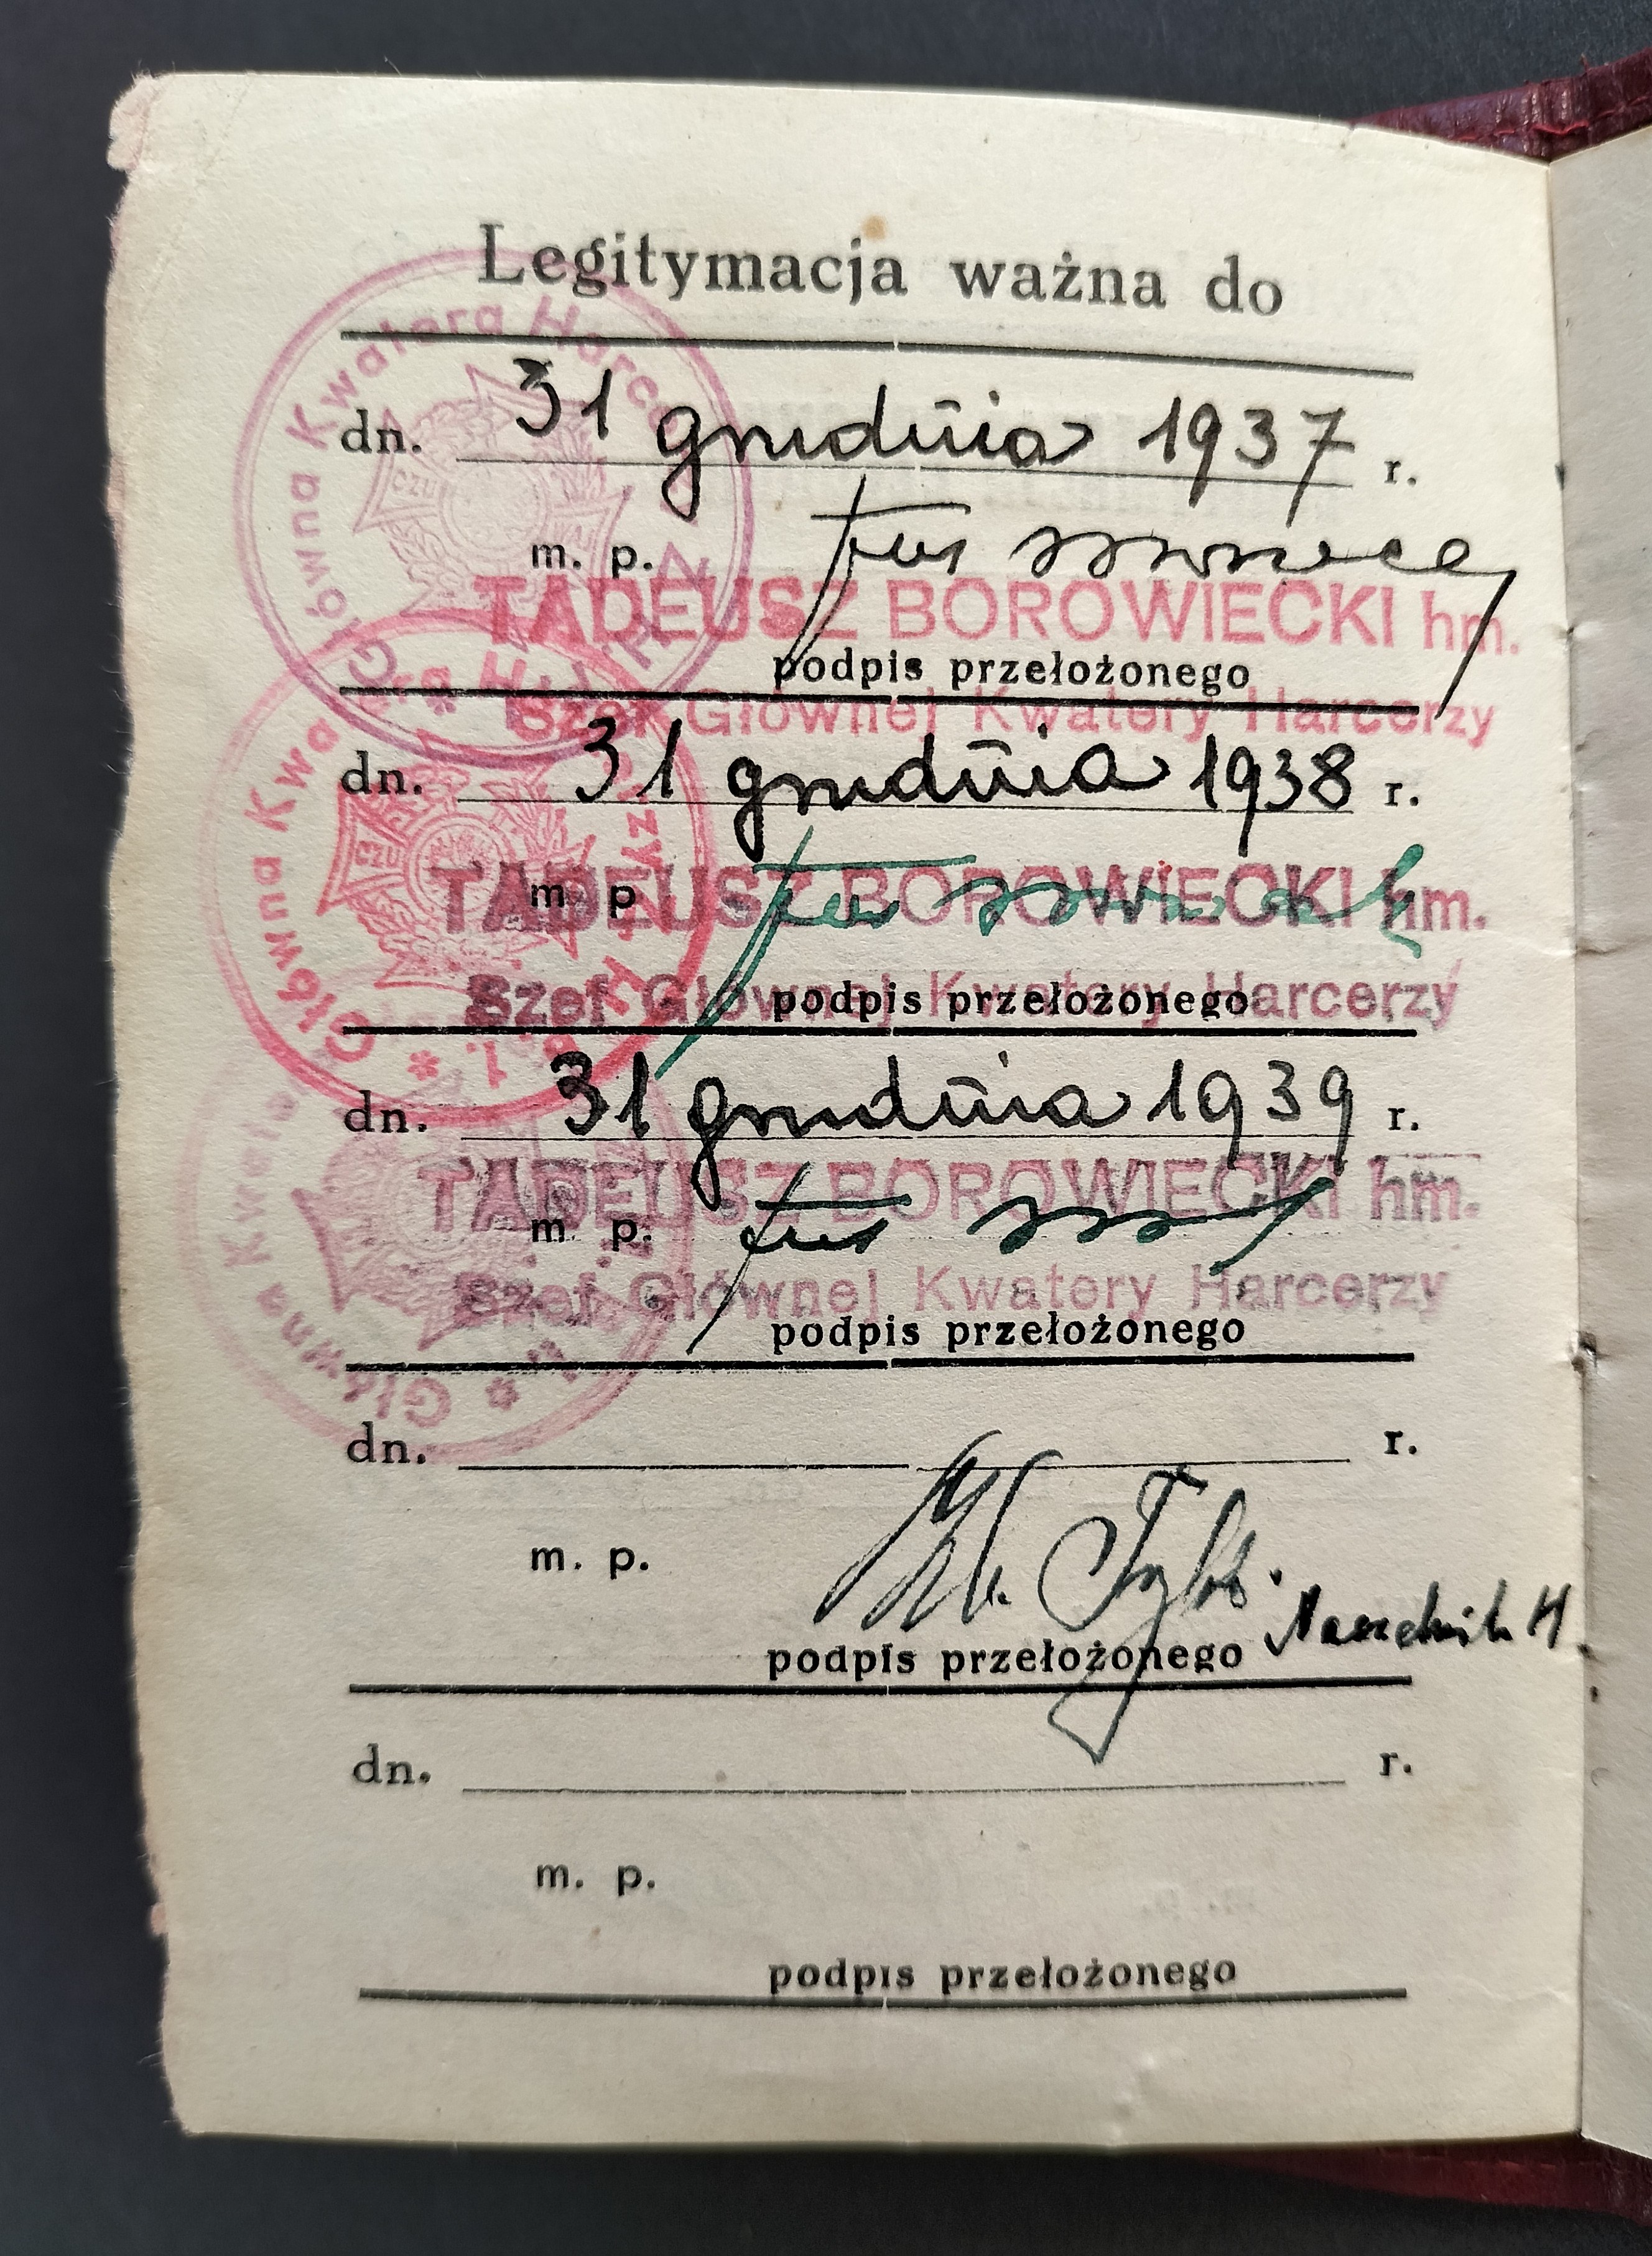 Legitymacja ważna do
dn. 31 grudnia 1937 r.
m. p.
TADEUSZ BOROWIECKI hm.
podpis przełożonego
Szef Głównej Kwatery Harcerzy
Główna Kwatera Harcerzy Z. H. P.
dn. 31 grudnia 1938 r.
m. p.
TADEUSZ BOROWIECKI hm.
Szef Głównej Kwatery Harcerzy
podpis przełożonego
Główna Kwatera Harcerzy Z. H. P.
CZU
dn. 31 grudnia 1939 r.
m. p.
TADEUSZ BOROWIECKI hm.
Szef Głównej Kwatery Harcerzy
podpis przełożonego
Główna Kwate
dn. r.
m. p.
podpis przełożonego Naczelnik H.
dn. r.
m. p.
podpis przełożonego